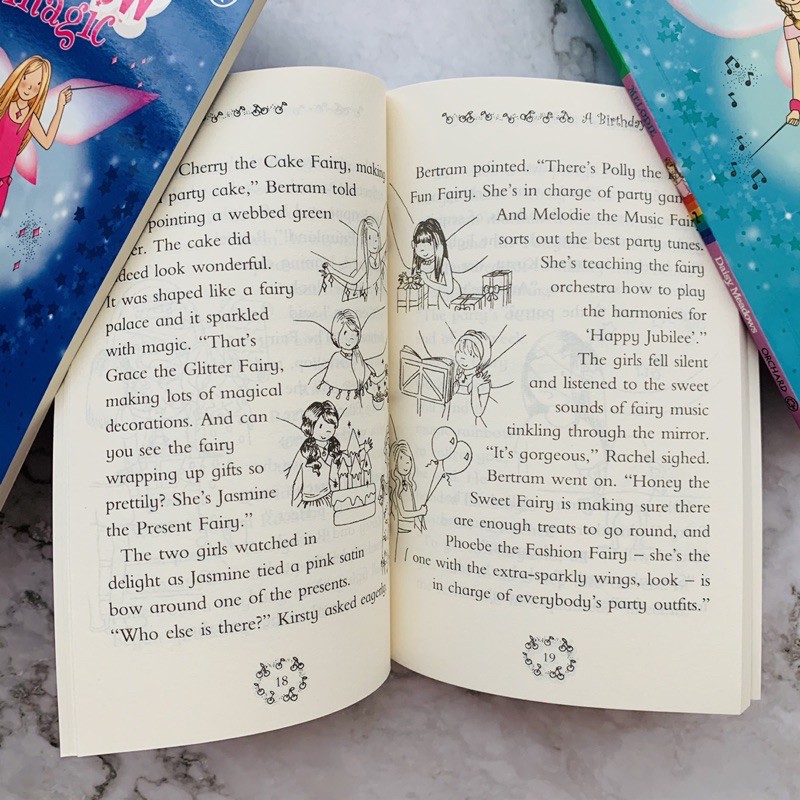 magic
Cherry the Cake Fairy, making
party cake,” Bertram told
pointing a webbed green
The cake did
indeed look wonderful.
It was shaped like a fairy
palace and it sparkled
with magic. “That’s
Grace the Glitter Fairy,
making lots of magical
decorations. And can
you see the fairy
wrapping up gifts so
prettily? She’s Jasmine
the Present Fairy.”
The two girls watched in
delight as Jasmine tied a pink satin
bow around one of the presents.
“Who else is there?” Kirsty asked eagerly.
18
A Birthday
Bertram pointed. “There’s Polly the
Fun Fairy. She’s in charge of party games.
And Melodie the Music Fairy
sorts out the best party tunes.
She’s teaching the fairy
orchestra how to play
the harmonies for
‘Happy Jubilee’.”
The girls fell silent
and listened to the sweet
sounds of fairy music
tinkling through the mirror.
“It’s gorgeous,” Rachel sighed.
Bertram went on. “Honey the
Sweet Fairy is making sure there
are enough treats to go round, and
Phoebe the Fashion Fairy – she’s the
one with the extra-sparkly wings, look – is
in charge of everybody’s party outfits.”
19
MELODIE
Daisy Meadows
ORCHARD